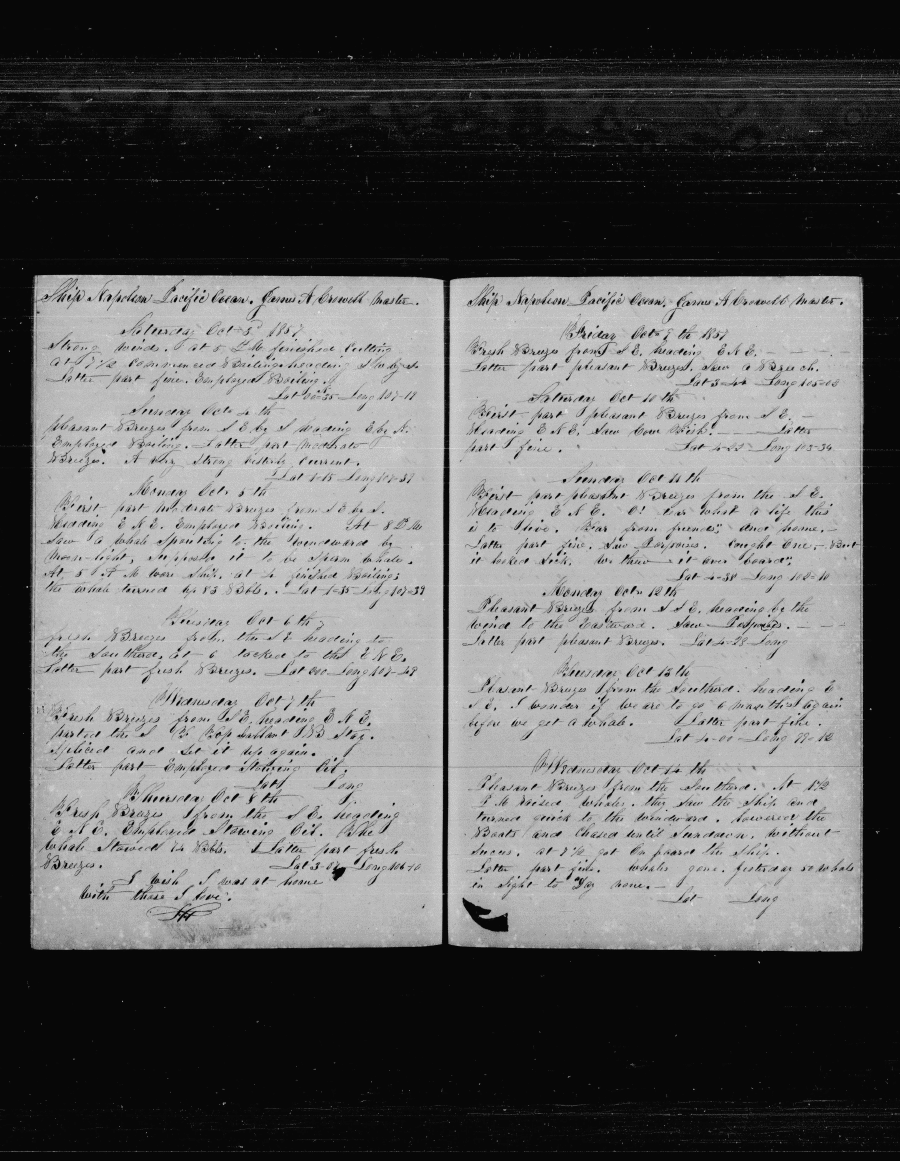 Ship Napoleon Pacific Ocean. James A Crowell Master.
Saturday Oct 3d 1857
Strong winds. at 5 P.M. finished Cutting
at 7 1/2 Commenced Boiling heading S W by S.
Latter part fine. Employed Boiling.
Long 107-17
Sunday Oct 4 th
pleasant Breezes from S E by S heading E by N.
Employed Boiling. Latter part Moderate
Breezes. A very strong Current.
Lat 1-15 Long 107-37
Monday Oct 5 th
First part modrate Breezes from S E by S.
Heading E N E. Employed Boiling. At 8 P.M
Saw a whale Spouting to the windward by
moon-light, suppose it to be Sperm whale.
At 5 A M wore Ship. at 4 finished Boiling;
the whale turned up 83 Bbls. Lat 1-35 Long 107-39
Tuesday Oct 6 th
fresh Breezes from the S E heading to
the Southerd. at 6 tacked to the E N E.
Latter part fresh Breezes. Lat Long 107-48
Wednesday Oct 7 th
Fresh Breezes from S E. heading E N E.
parted the Top Gallant Stay.
Spliced and Set it up again.
Latter part Employed Stowing Oil
Lat Long
Thursday Oct 8 th
Fresh Breezes from the S E. heading
E N E. Employed Stowing Oil. The
whale Stowed 74 Bbls. Latter part fresh
Breezes. Lat 3-04 Long 106-10
I wish I was at home
with those I love.
Ship Napoleon Pacific Ocean. James A Crowell Master.
Friday Oct 9 th 1857
Fresh Breezes from S E. heading E N E.
Latter part pleasant Breezes. Saw a Breech.
Lat 3-44 Long 105-06
Saturday Oct 10 th
First part pleasant Breezes from S E. —
Heading E N E. Saw Cow Fish. — Latter
part fine. Lat 4-23 Long 103-34
Sunday Oct 11 th
First part pleasant Breezes from the S E.
Heading E N E. O! what a life this
is to live. Far from friends, and home. —
Latter part fine. Saw Porpoises. Caught One, — But
it looked Sick. we threw it over board,
Lat 4-38 Long 102-10
Monday Oct 12 th
Pleasant Breezes from S S E. heading by the
wind to the Eastward. Saw Porpoises. —
Latter part pleasant Breezes. Lat 4-28 Long
Tuesday Oct 13 th
Pleasant Breezes from the Southerd. heading E
S E. I wonder if we are to go 6 months again
before we get a whale. Latter part fine.
Lat 4-00 Long 99-12
Wednesday Oct 14 th
Pleasant Breezes from the Southerd. At 1 1/2
P M raised whales. they saw the Ship and
turned quick to the windward. Lowered the
Boats and Chased until Sundown. without
Sucess. at 7 1/2 got On board the Ship.
Latter part fine. whales gone. Yesterday whals
in sight to Day none. —
Lat Long